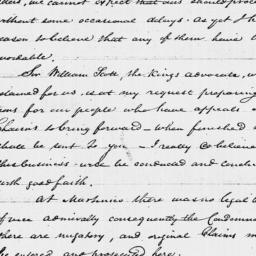 we cannot expect that this should proce
without some occasional delays. as yet I h
eason to believe that any of them have b
voidable.
Sir William Scott, the Kings advocate, w
claimed for us, is at my request preparing
ions for our people who have appeals or
Claims to bring forward – when finished
shall be sent to you – I really believe
this business will be conducted and conclu
with good faith.
At Martinico there was no legal C
of vice admiralty consequently the Condemna
there are nugatory, and original Claims m
be entered and prosecuted here.